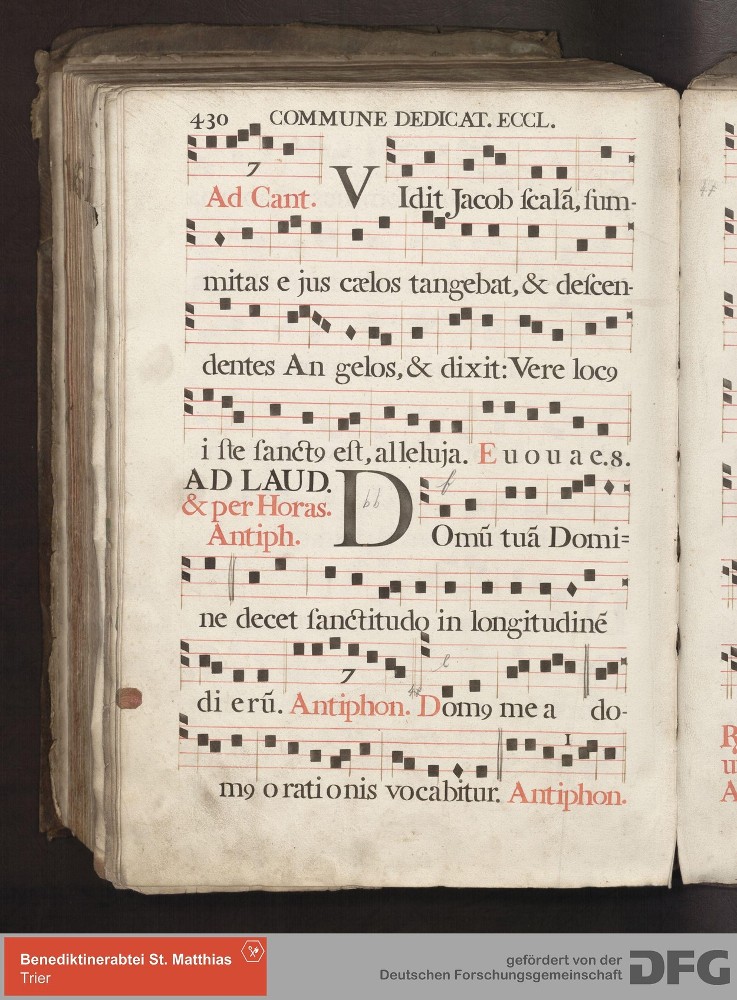 430 COMMUNE DEDICAT. ECCL.
7
Ad Cant. VIdit Jacob ſcalã, ſum-
mitas e jus cælos tangebat, & deſcen-
dentes An gelos, & dixit: Vere locꝰ
i ſte ſanctꝰ eſt, alleluja. E u o u a e. 8.
AD LAUD.
& per Horas.
Antiph. DOmũ tuã Domi=
ne decet ſanctitudo in longitudinẽ
7
di erũ. Antiphon. Domꝰ me a do-
1
mꝰ o rati o nis vocabitur. Antiphon.
Benediktinerabtei St. Matthias
Trier
gefördert von der
Deutschen Forschungsgemeinschaft DFG